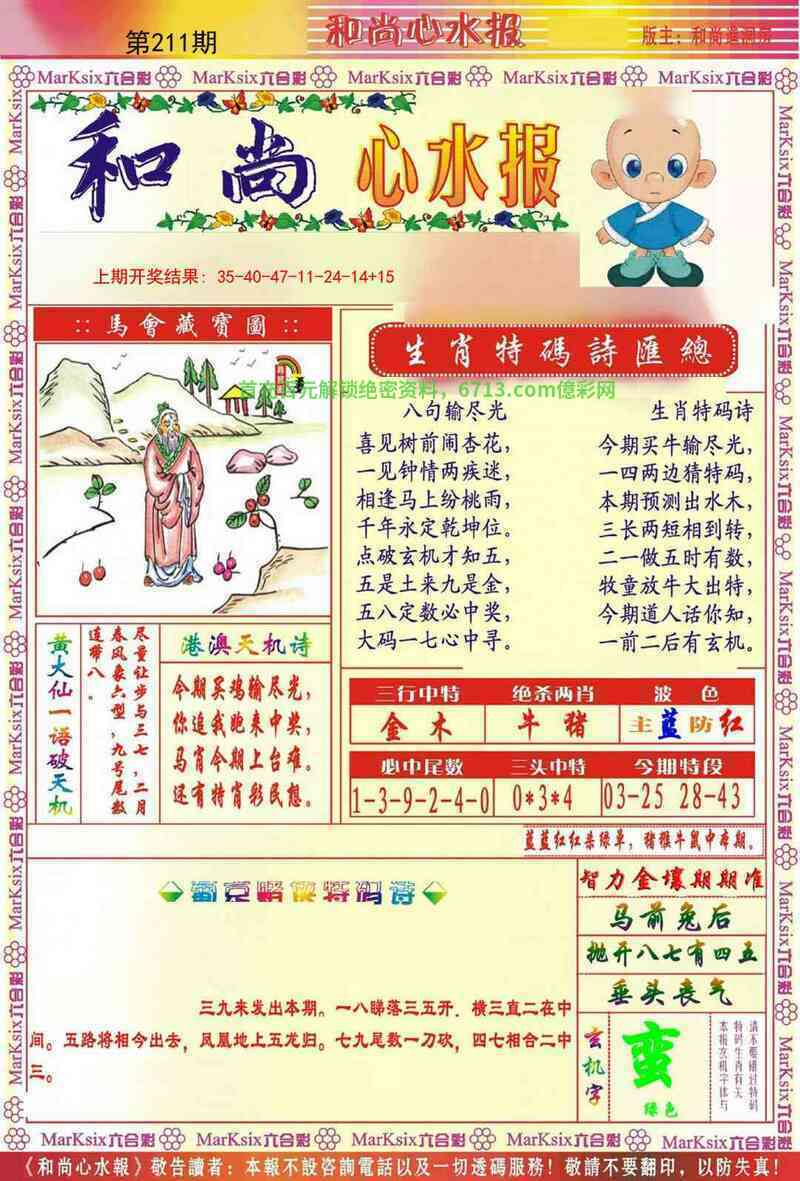 第211期
和尚心水报
MarKsix六合彩 MarKsix六合彩 MarKsix六合彩 MarKsix六合彩 MarKsix六合彩
和尚心水报
上期开奖结果: 35-40-47-11-24-14+15
::馬會藏寶圖::
生肖特碼詩匯總
6713.com億彩网
八句输尽光
喜见树前闹杏花，
一见钟情两疾迷，
相逢马上纷桃雨，
千年永定乾坤位。
点破玄机才知五，
五是土来九是金，
五八定数必中奖，
大码一七心中寻。
生肖特码诗
今期买牛输尽光，
一四两边猜特码，
本期预测出水木，
三长两短相到转，
二一做五时有数，
牧童放牛大出特，
今期道人话你知，
一前二后有玄机。
黄大仙一语破天机
尽量让步与三七，二月
春风象六型，九号尾数
连带八。
港澳天机诗
今期买鸡输尽光，
你追我跑来中奖，
马肖今期上台难。
还有特肖彩民想。
三行中特 绝杀两肖 波 色
金木 牛猪 主蓝防红
必中尾数 三头中特 今期特段
1-3-9-2-4-0 0*3*4 03-25 28-43
蓝蓝红红杀绿单，猪猴牛鼠中本期。
三九来发出本期。一八睇落三五开．横三直二在中
间。五路将相今出去，凤凰地上五龙归。七九尾数一刀砍，四七相合二中
三。
智力金壤期期准
马前兔后
抛开八七有四五
垂头丧气
玄机字
蛮
绿色
特码生肖有关
本报玄机字体与
MarKsix六合彩 MarKsix六合彩 MarKsix六合彩 MarKsix六合彩 MarKsix六合彩
《和尚心水報》敬告讀者：本報不設咨詢電話以及一切透碼服務！敬請不要翻印，以防失真！